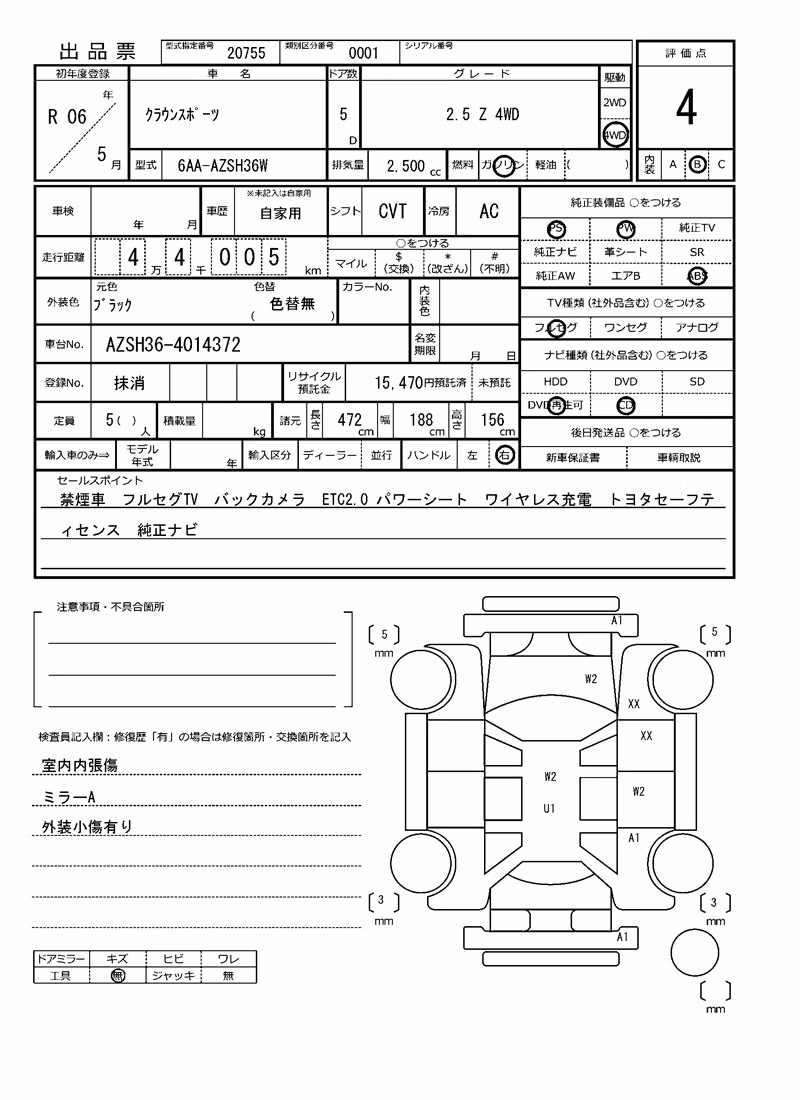 出品票 型式指定番号 20755 類別区分番号 0001 シリアル番号
評価点
初年度登録 車名 ドア数 グレード 駆動
R 06 年 5 月 クラウンスポーツ 5 D 2.5 Z 4WD 2WD 4WD
4
型式 6AA-AZSH36W 排気量 2,500 cc 燃料 ガソリン 軽油 ( )
内装 A B C
車検 年 月 車歴 ※未記入は自家用 自家用 シフト CVT 冷房 AC
走行距離 4 万 4 千 0 0 5 km ○をつける マイル $(交換) *(改ざん) #(不明)
外装色 元色 ブラック 色替 ( 色替無 ) カラーNo. 内装色
車台No. AZSH36-4014372 名変期限 月 日
登録No. 抹消 リサイクル預託金 15,470円預託済 未預託
定員 5( )人 積載量 kg 諸元 長さ 472 cm 幅 188 cm 高さ 156 cm
輸入車のみ⇒ モデル年式 年 輸入区分 ディーラー 並行 ハンドル 左 右
純正装備品 ○をつける
PS PW 純正TV
純正ナビ 革シート SR
純正AW エアB ABS
TV種類(社外品含む)○をつける
フルセグ ワンセグ アナログ
ナビ種類(社外品含む)○をつける
HDD DVD SD
DVD再生可 CD
後日発送品 ○をつける
新車保証書 車輌取説
セールスポイント
禁煙車 フルセグTV バックカメラ ETC2.0 パワーシート ワイヤレス充電 トヨタセーフテ
ィセンス 純正ナビ
注意事項・不具合箇所
検査員記入欄:修復歴「有」の場合は修復箇所・交換箇所を記入
室内内張傷
ミラーA
外装小傷有り
ドアミラー キズ ヒビ ワレ
工具 無 ジャッキ 無
A1
5 mm
5 mm
W2
XX
XX
W2
W2
U1
A1
3 mm
3 mm
A1
mm